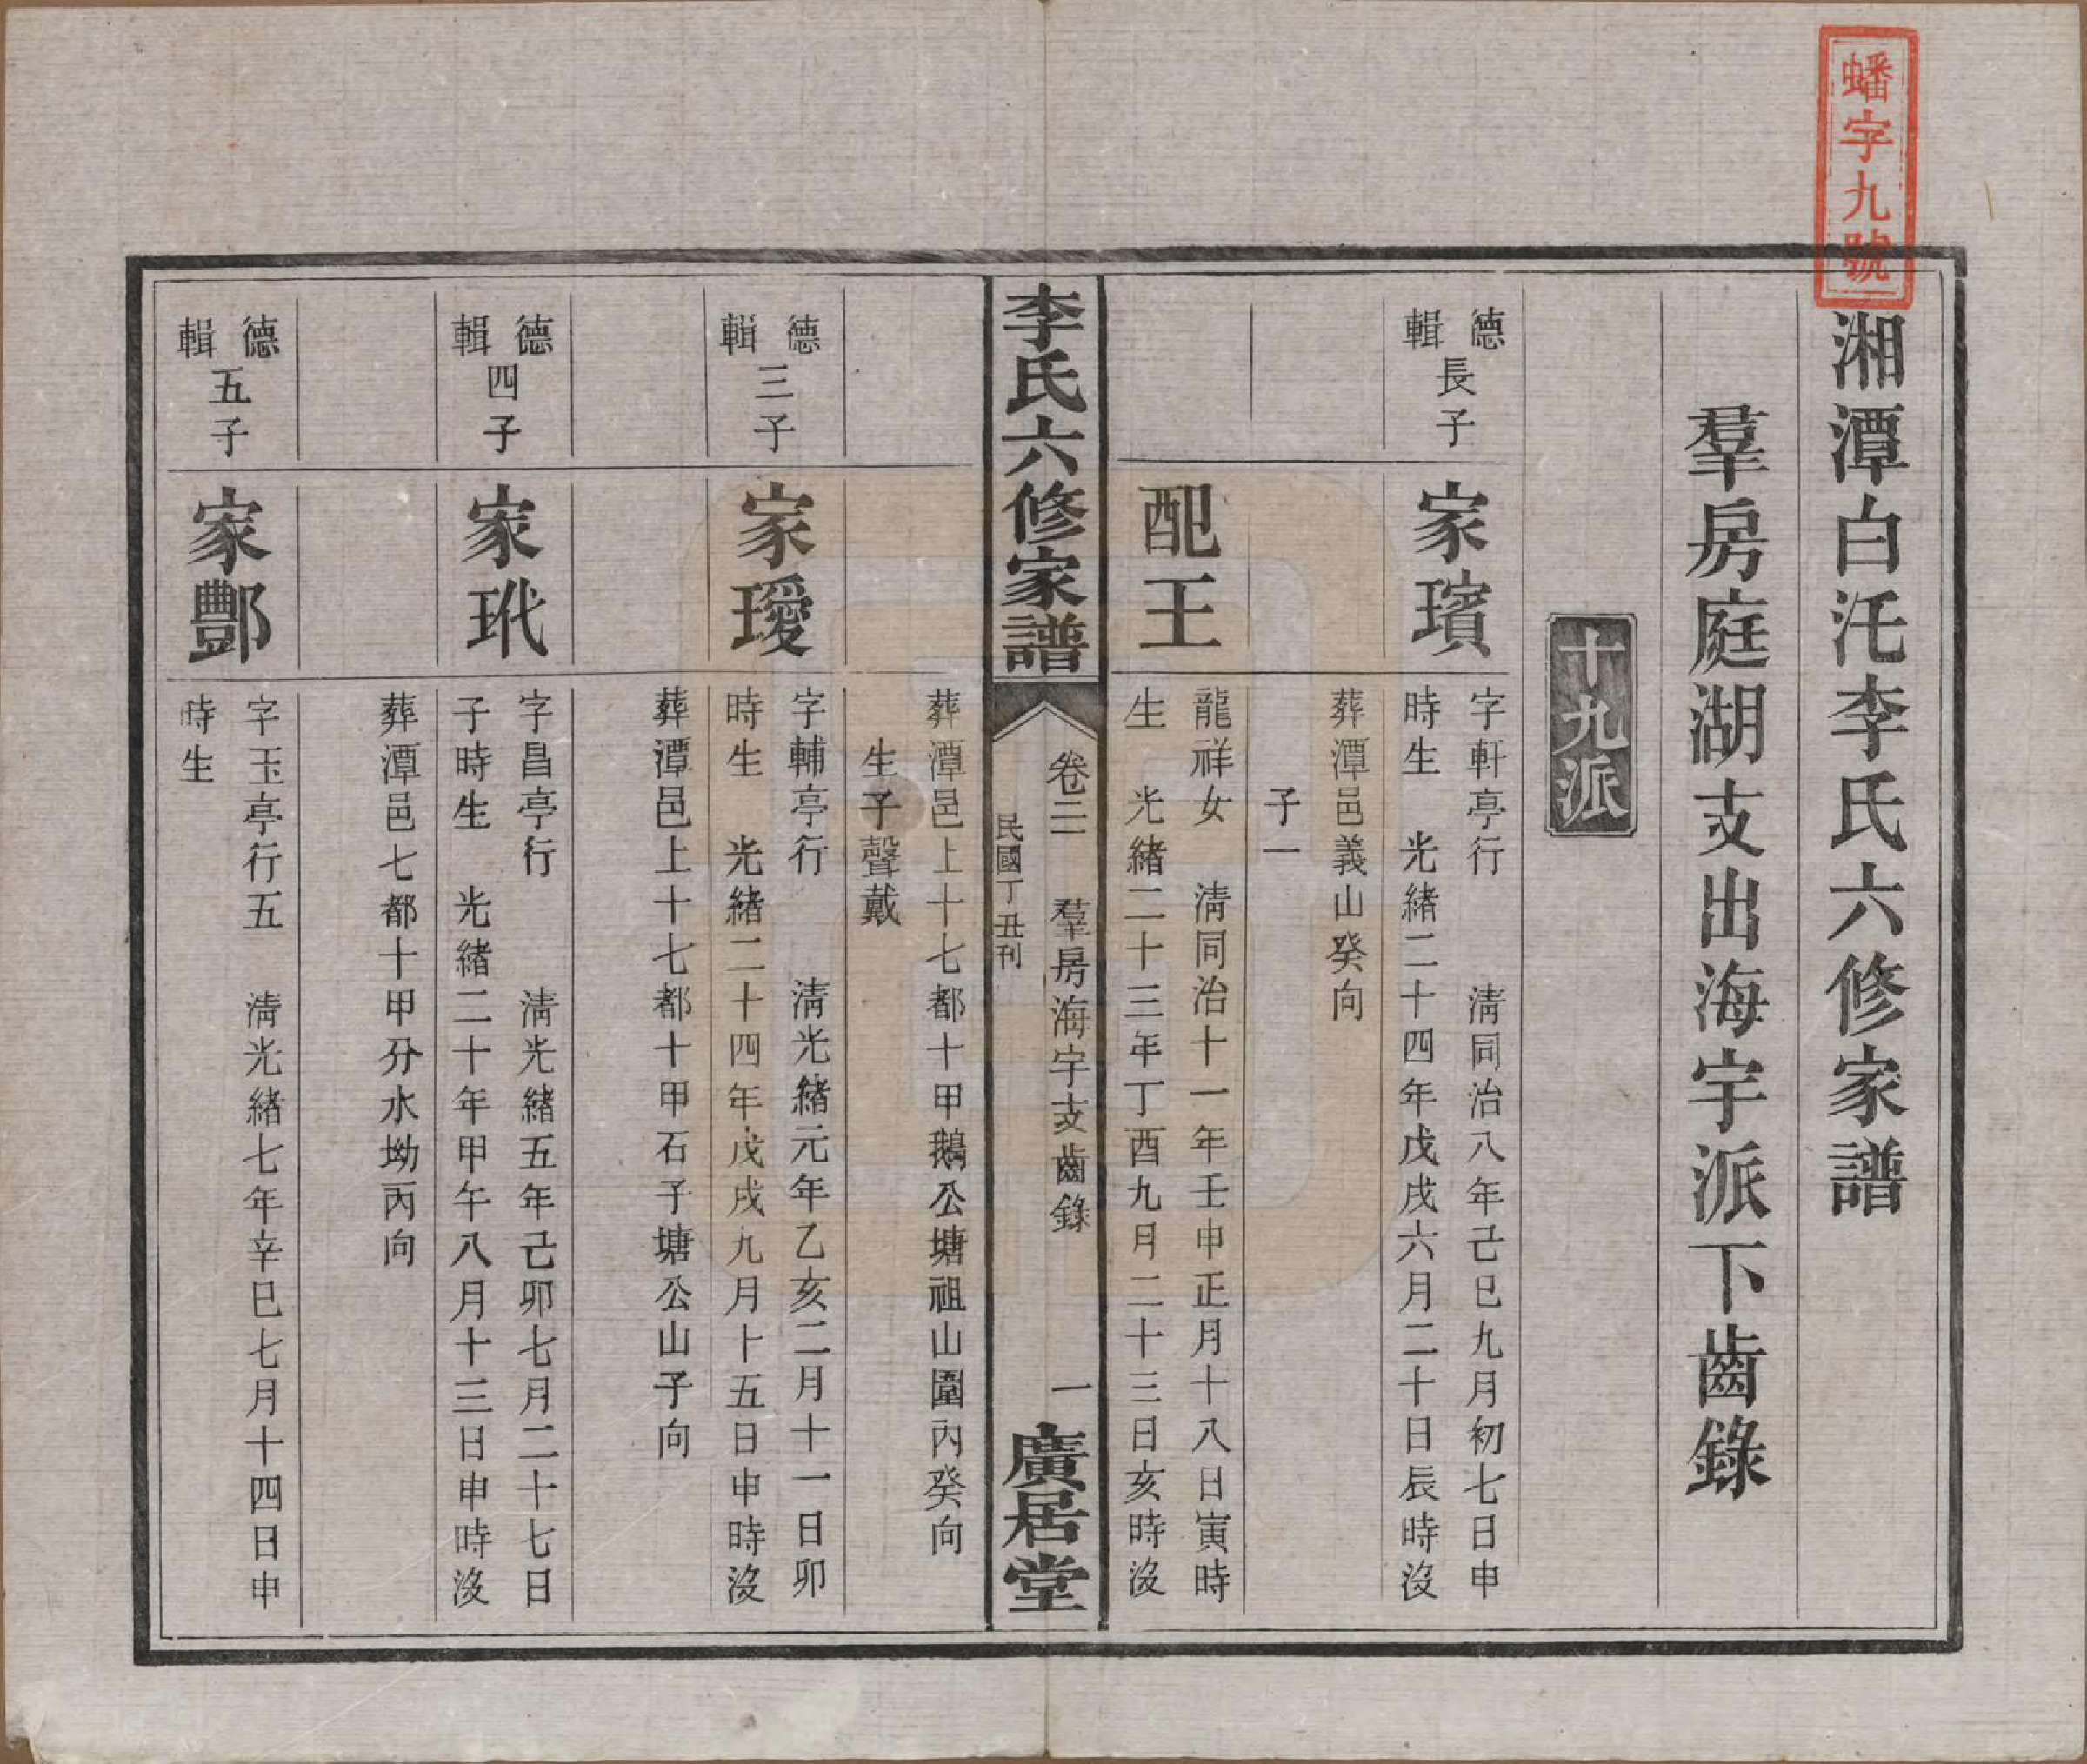 蟠字九號
湘潭白汑李氏六修家譜
羣房庭湖支出海宇派下齒錄
十九派
德輯長子
家璸
字軒亭行　淸同治八年己巳九月初七日申
時生　光緒二十四年戊戌六月二十日辰時沒
葬潭邑義山癸向
子一
配王
龍祥女　淸同治十一年壬申正月十八日寅時
生　光緒二十三年丁酉九月二十三日亥時沒
李氏六修家譜
卷二　羣房海宇支齒錄　一
民國丁丑刊
廣居堂
葬潭邑上十七都十甲鵝公塘祖山圍內癸向
生子聲戴
德輯三子
家璦
字輔亭行　淸光緒元年乙亥二月十一日卯
時生　光緒二十四年戊戌九月十五日申時沒
葬潭邑上十七都十甲石子塘公山子向
德輯四子
家玳
字昌亭行　淸光緒五年己卯七月二十七日
子時生　光緒二十年甲午八月十三日申時沒
葬潭邑七都十甲分水坳丙向
德輯五子
家酆
字玉亭行五　淸光緒七年辛巳七月十四日申
時生